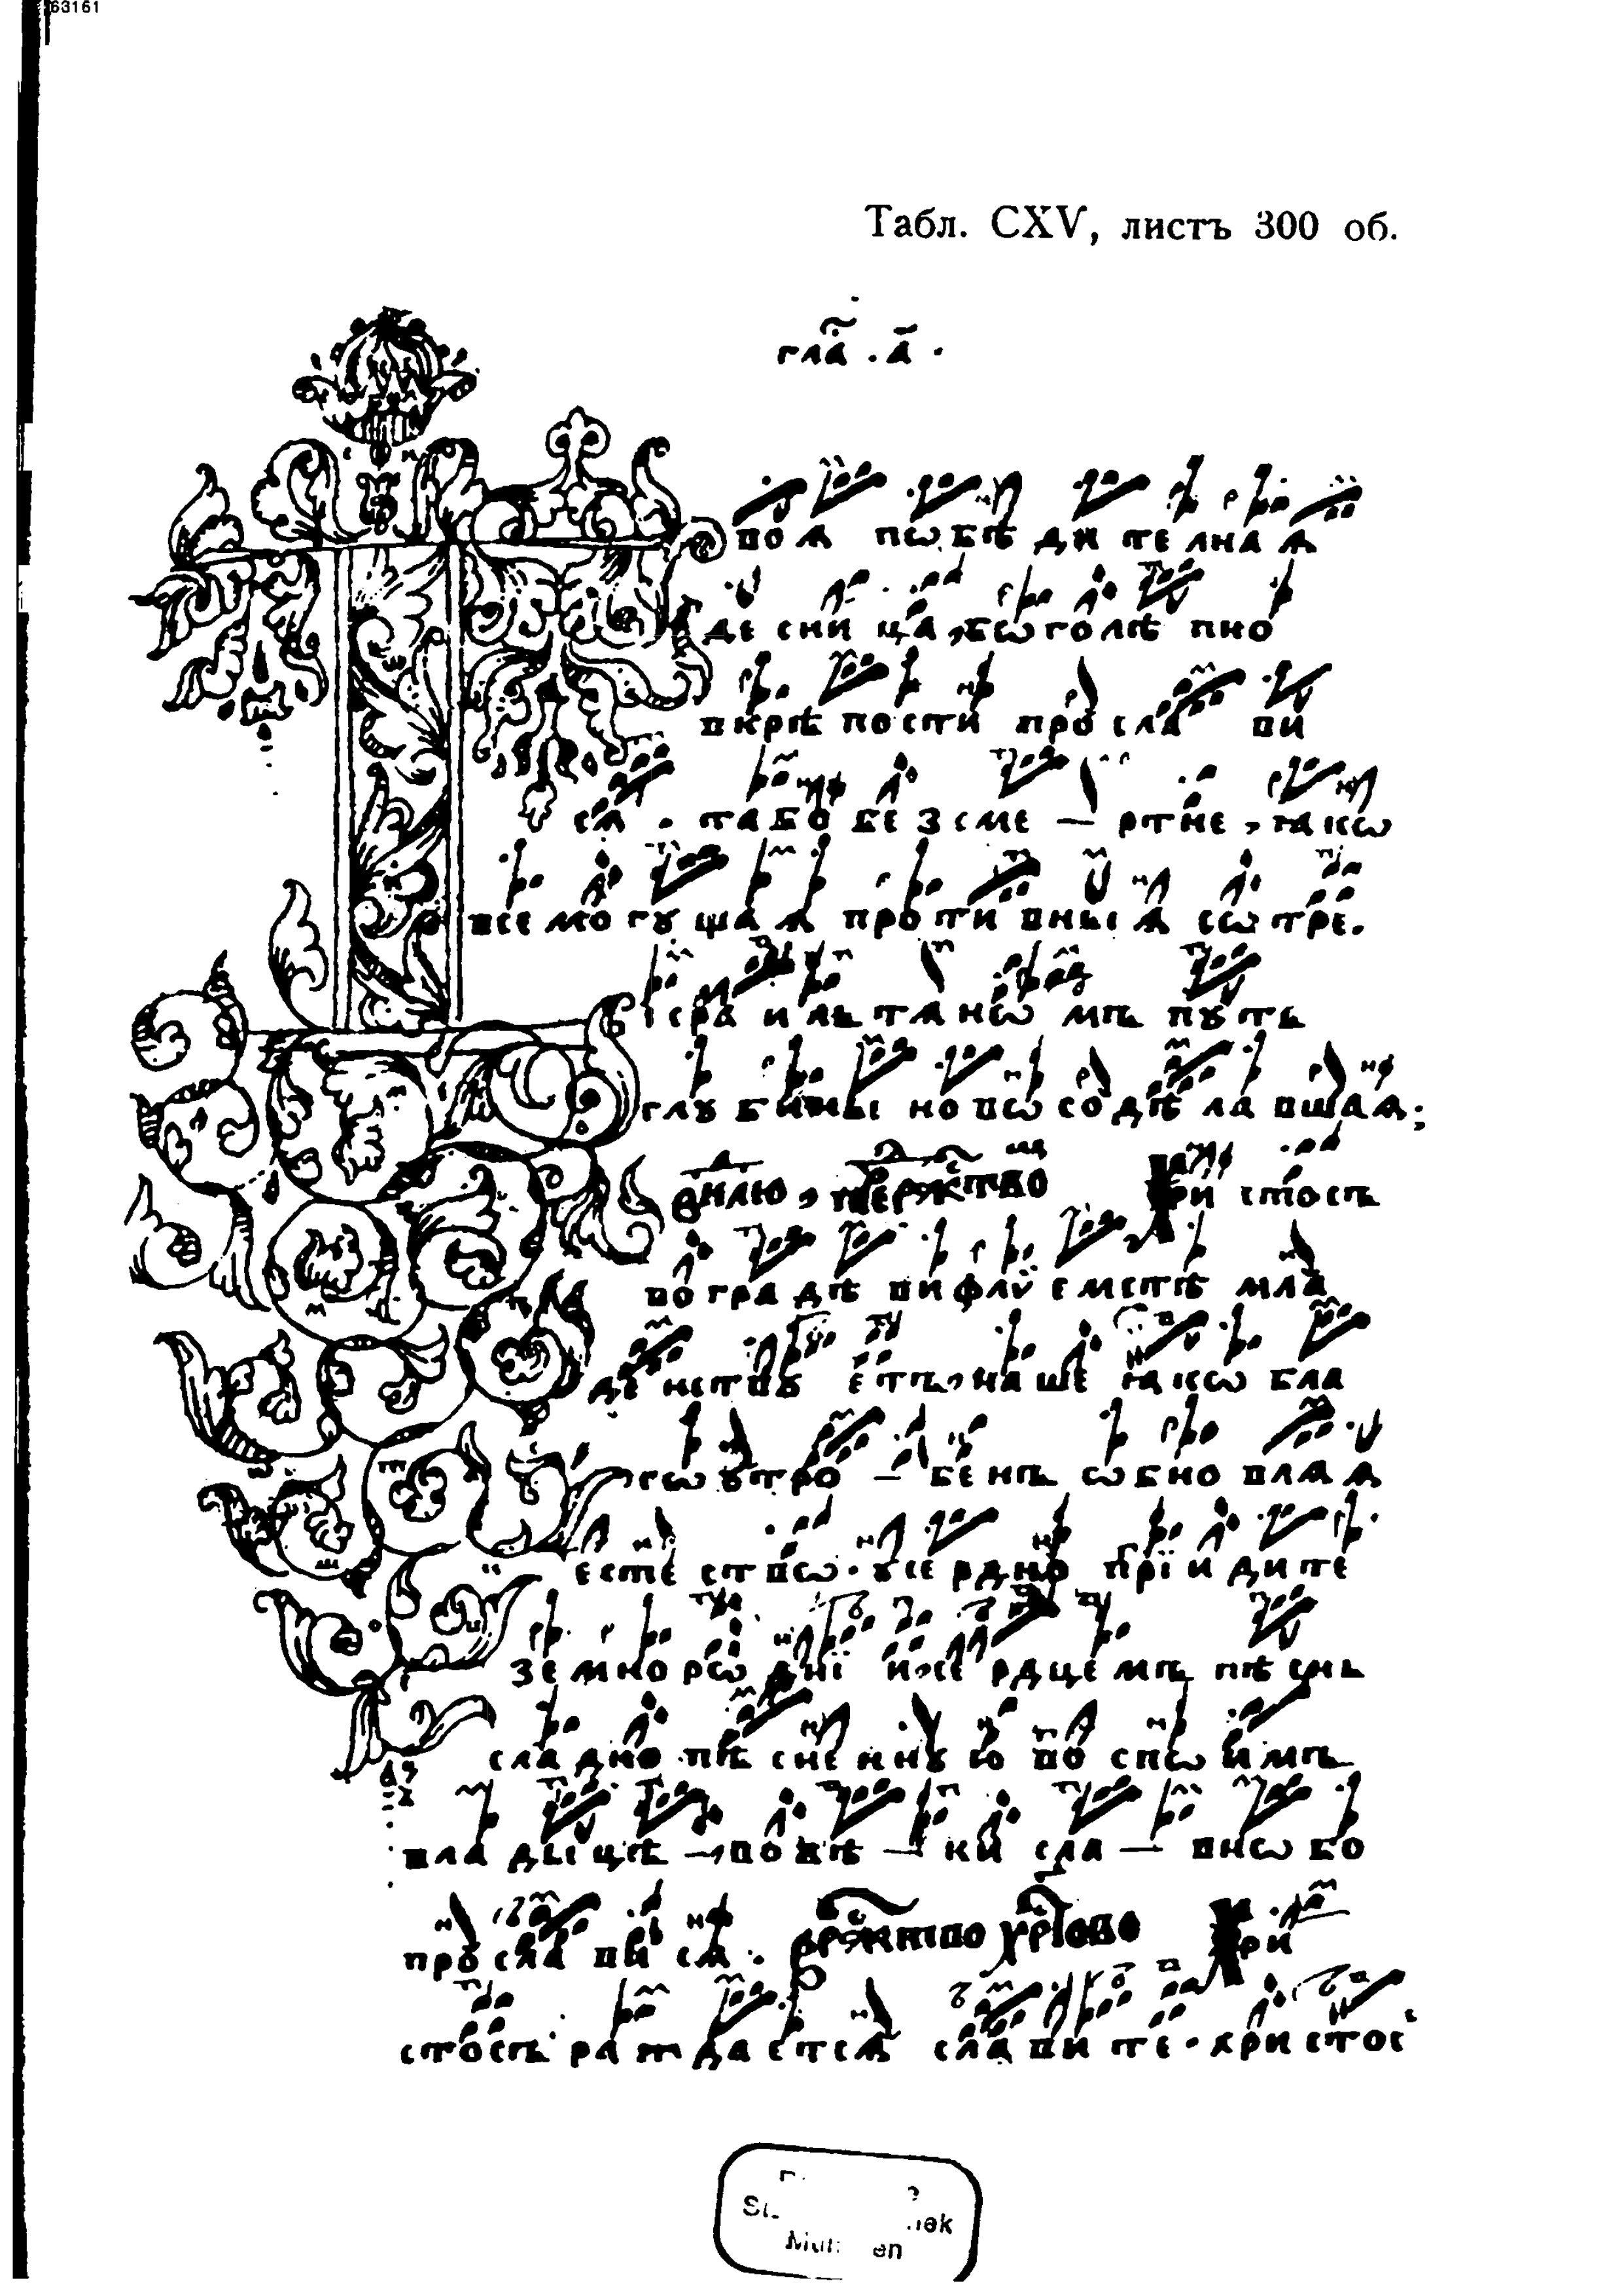 63161
Табл. CXV, листъ 300 об.
гла҃ . а҃ .
воѧ побѣ ди те лнаѧ
де сни ца , бѡ го лѣ пно
в крѣ пости просла ви
сѧ . та бо безсме — ртне , ꙗкѡ
все мо гꙋ щаѧ проти вныѧ сѡ тре .
їсра и льтѧ нѡ мъ пꙋть
глꙋ бины новѡ содѣ ла вшаѧ ;
ри стосъ
во градѣ вифлѵ еместѣ мла
де нствꙋ етъ , наше ꙗкѡ бла
гѡ ꙋтро — бенъ ѡбно влѧѧ
есте ствѡ . ꙋсе рдно прїидите
земнорѡ днї и , се рдцемъ пѣснь
сладко пѣ сненнꙋю воспѡимъ
влады цѣ — , вовѣ — ки сла — внѡ бо
просла ви сѧ . рржтво хрⷭ҇тово ри
стосъ раждаетсѧ сла ви те . христос